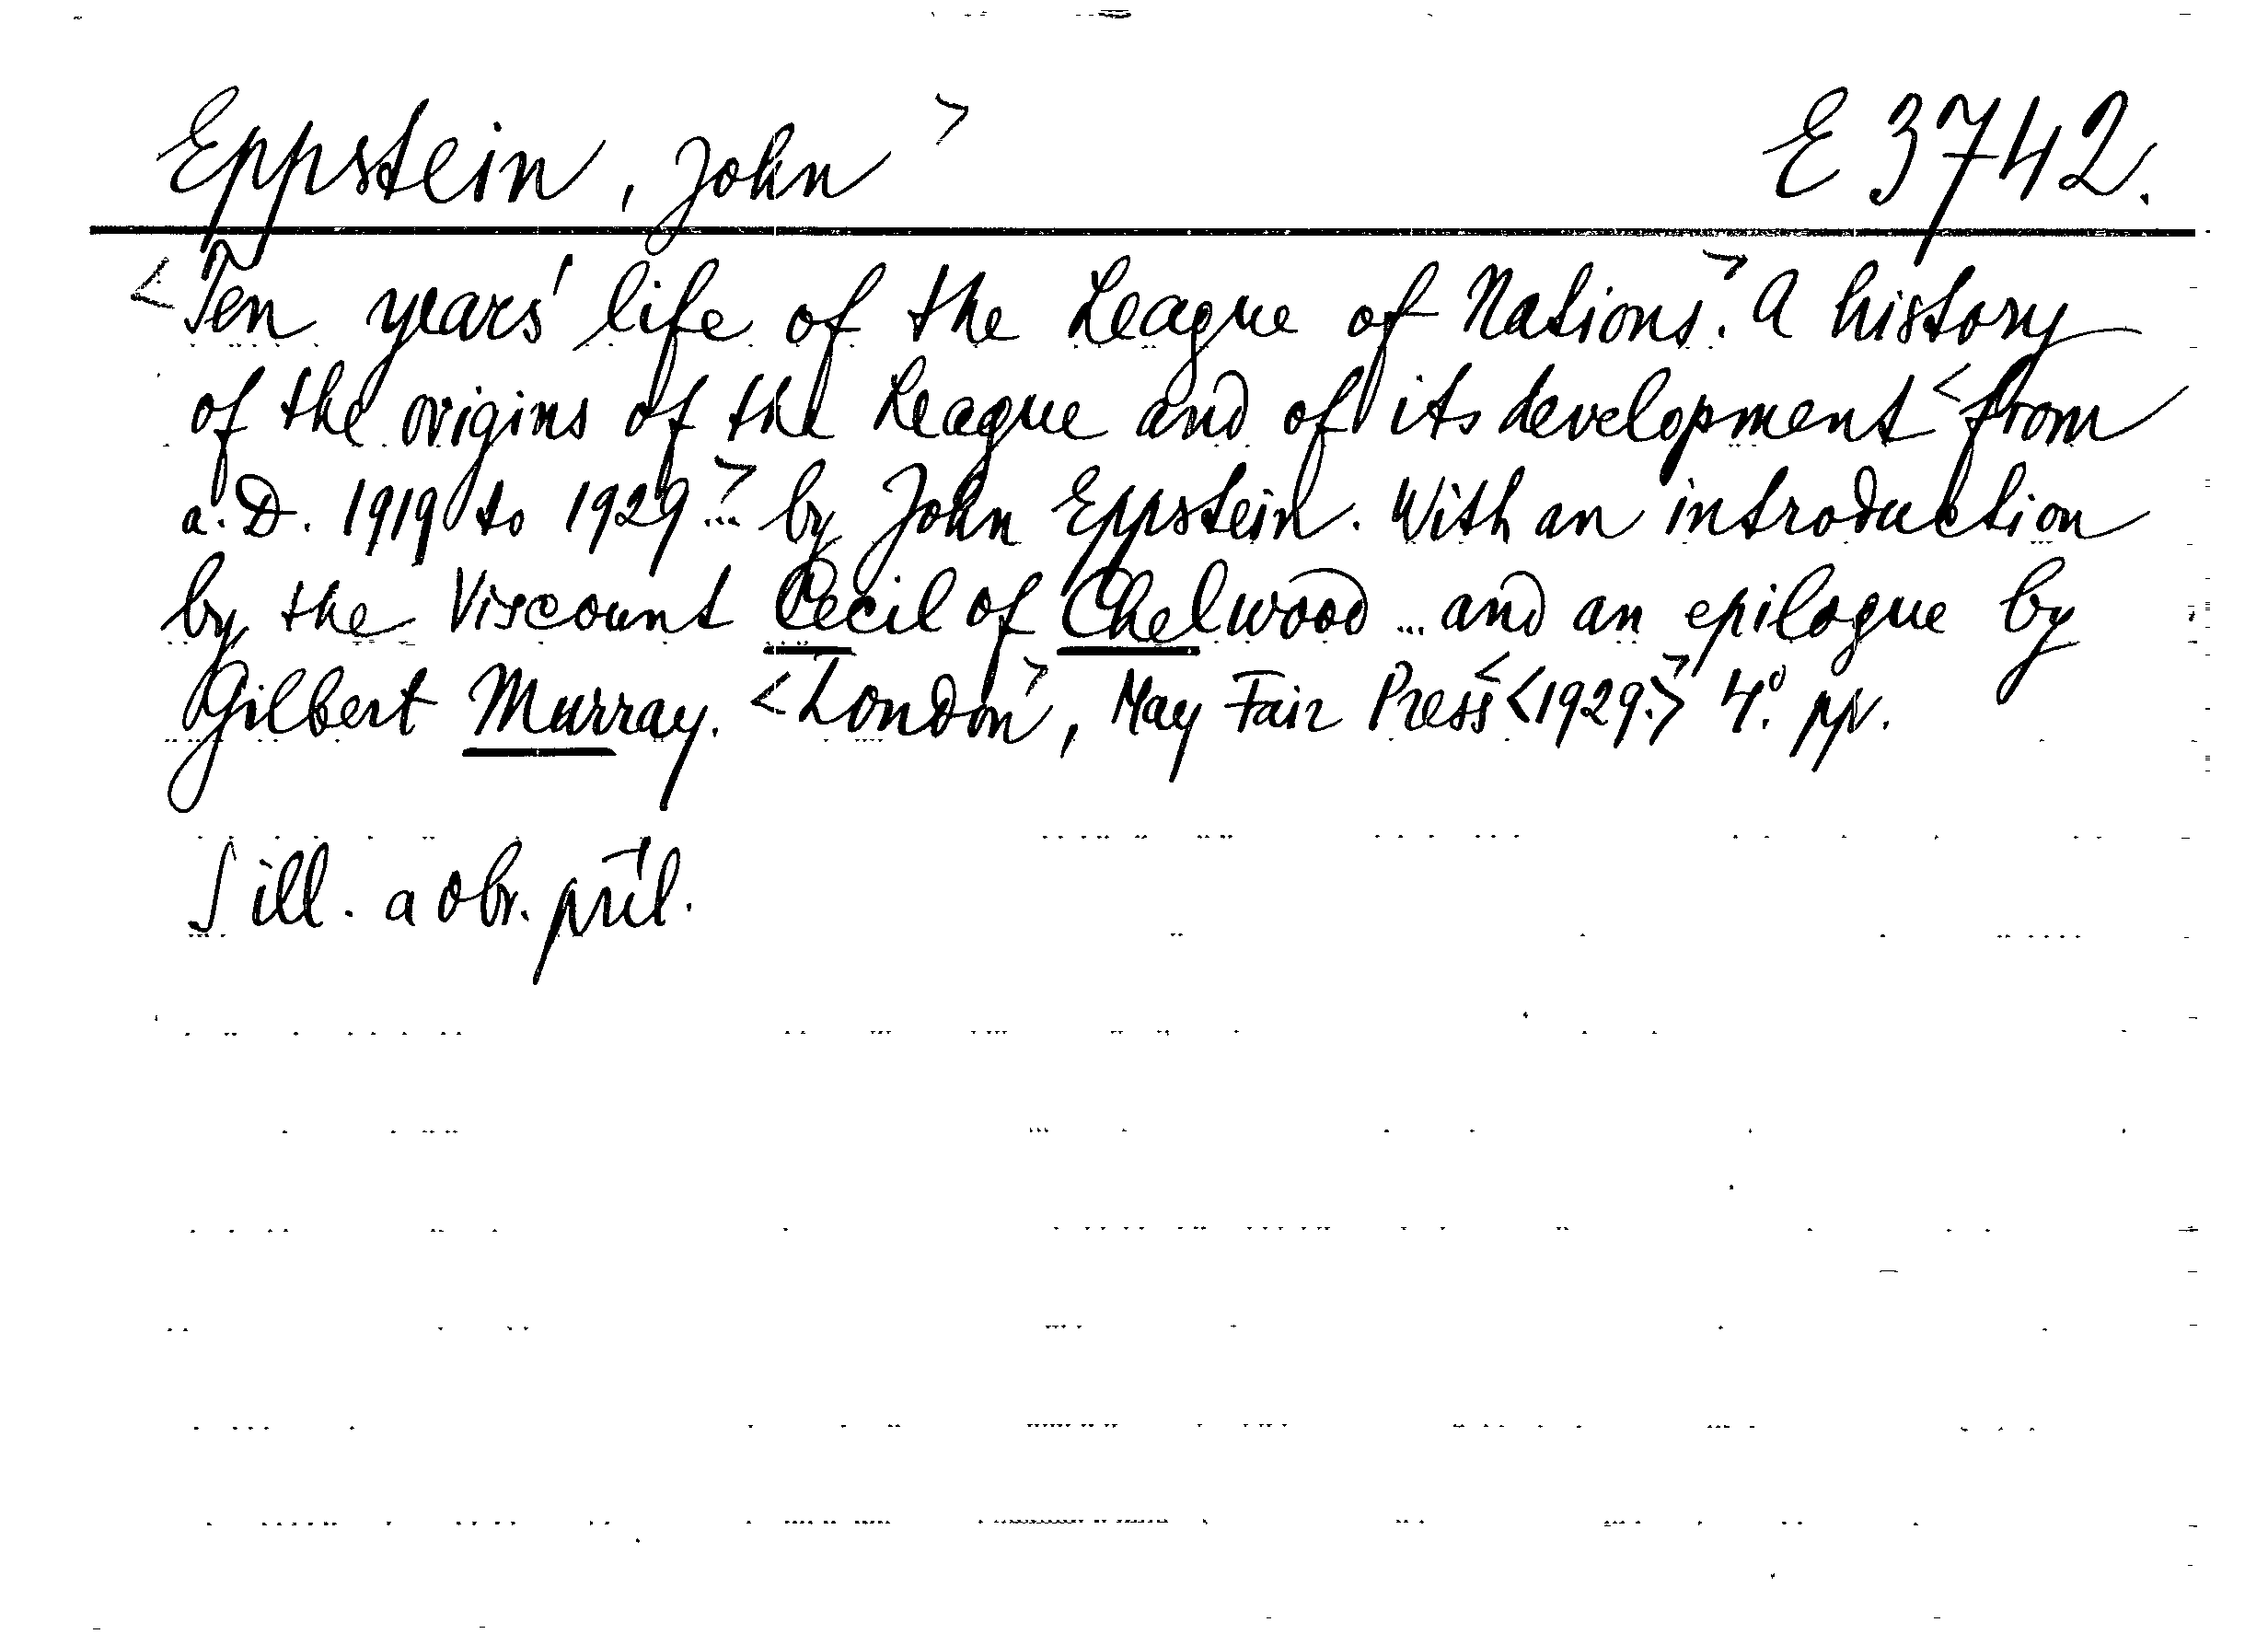 Eppstein, John > E 3742.
<Ten years' life of the League of Nations.> A history
of the origins of the League and of its development <from
a. D. 1919 to 1929...> by John Eppstein. With an introduction
by the Viscount Cecil of Chelwood ... and an epilogue by
Gilbert Murray. <London>, May Fair Press <<1929.>> 4º. pp.
S ill. a obr. příl.